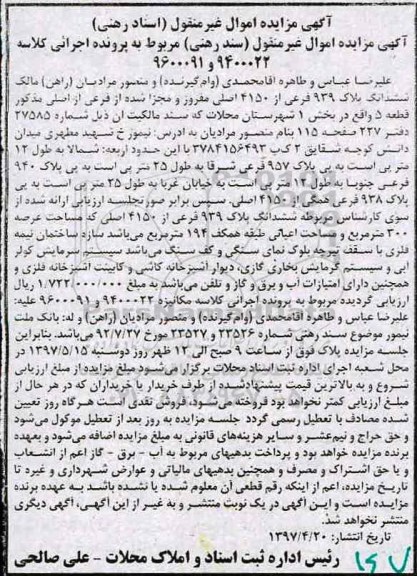 آگهی مزایده اموال غیرمنقول (اسناد رهنی)
آگهی مزایده اموال غیرمنقول (سند رهنی) مربوط به پرونده اجرائی کلاسه
۹۴۰۰۰۲۲ و ۹۶۰۰۰۹۱
علیرضا عباس و طاهره آقامحمدی (وام‌گیرنده) و منصور مرادیان (راهن) مالک
ششدانگ پلاک ۹۳۹ فرعی از ۴۱۵۰ اصلی مفروز و مجزا شده از فرعی از اصلی مذکور
قطعه ۵ واقع در بخش ۱ شهرستان محلات که سند مالکیت آن ذیل شماره ۲۷۵۸۵
دفتر ۲۳۷ صفحه ۱۱۵ بنام منصور مرادیان به آدرس: نیمور خ شهید مطهری میدان
دانش کوچه شقایق ۲ ک‌پ ۳۷۸۴۱۵۶۴۹۳ با این حدود اربعه: شمالا به طول ۱۲
متر پی است به پی پلاک ۹۵۷ فرعی شرقا به طول ۲۵ متر پی است به پی پلاک ۹۴۰
فرعی جنوبا به طول ۱۲ متر پی است به خیابان غربا به طول ۲۵ متر پی است به پی
پلاک ۹۳۸ فرعی همگی از ۴۱۵۰ اصلی. سپس برابر صورتجلسه ارزیابی ارائه شده از
سوی کارشناس مربوطه ششدانگ پلاک ۹۳۹ فرعی از ۴۱۵۰ اصلی که مساحت عرصه
۳۰۰ مترمربع و مساحت اعیانی طبقه همکف ۱۹۴ مترمربع می‌باشد سازه ساختمان نیمه
فلزی با سقف تیرچه بلوک نمای سنگی و کف سنگ می‌باشد سیستم سرمایش کولر
آبی و سیستم گرمایش بخاری گازی، دیوار آشپزخانه کاشی و کابینت آشپزخانه فلزی و
همچنین دارای امتیازات آب و برق و گاز و تلفن می‌باشد به مبلغ ۱/۷۲۲/۰۰۰/۰۰۰ ریال
ارزیابی گردیده مربوط به پرونده اجرائی کلاسه مکانیزه ۹۴۰۰۰۲۲ و ۹۶۰۰۰۹۱ علیه:
علیرضا عباس و طاهره آقامحمدی (وام‌گیرنده) و منصور مرادیان (راهن) و له: بانک ملت
نیمور موضوع سند رهنی شماره ۲۳۵۲۶ و ۲۳۵۲۷ مورخ ۹۲/۷/۲۷ می‌باشد. بنابراین
جلسه مزایده پلاک فوق از ساعت ۹ صبح الی ۱۲ ظهر روز دوشنبه ۱۳۹۷/۵/۱۵ در
محل شعبه اجرای اداره ثبت اسناد محلات برگزار می‌شود مبلغ مزایده از مبلغ ارزیابی
شروع و به بالاترین قیمت پیشنهادشده از طرف خریدار یا خریداران که در هر حال از
مبلغ ارزیابی کمتر نخواهد بود فروخته می‌شود. فروش نقدی است هرگاه روز تعیین
شده مصادف با تعطیل رسمی گردد جلسه مزایده به روز بعد از تعطیل موکول می‌شود
و حق حراج و نیم‌عشر و سایر هزینه‌های قانونی به مبلغ مزایده اضافه می‌شود و بعهده
برنده مزایده خواهد بود و پرداخت بدهیهای مربوط به آب - برق - گاز اعم از انشعاب
و یا حق اشتراک و مصرف و همچنین بدهیهای مالیاتی و عوارض شهرداری و غیره تا
تاریخ مزایده، اعم از اینکه رقم قطعی آن معلوم شده یا نشده باشد به عهده برنده
مزایده است و این آگهی در یک نوبت منتشر و به غیر از این آگهی، آگهی دیگری
منتشر نخواهد شد.
تاریخ انتشار: ۱۳۹۷/۴/۲۰
رئیس اداره ثبت اسناد و املاک محلات - علی صالحی